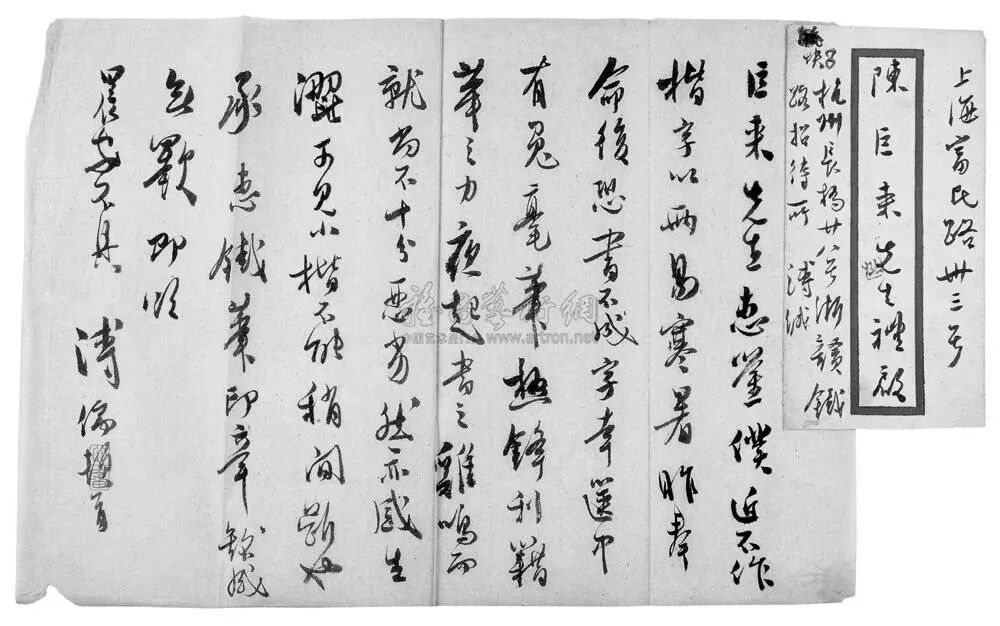 上海富民路卅三号
陳巨来先生禮啟
杭州長橋廿八号浙贛鐵
路招待所 溥緘
巨来先生惠鑒僕近不作
楷字以兩易寒暑昨奉
命後恐書不成字幸篋中
有兔毫筆極鋒利藉
筆之力夜起書之雞鳴而
就尚不十分惡劣然亦感生
澀可見小楷不能稍间斷也
承惠鐵筆印章銘感
無斁即頌
安不具 溥儒頓首
www.artron.net